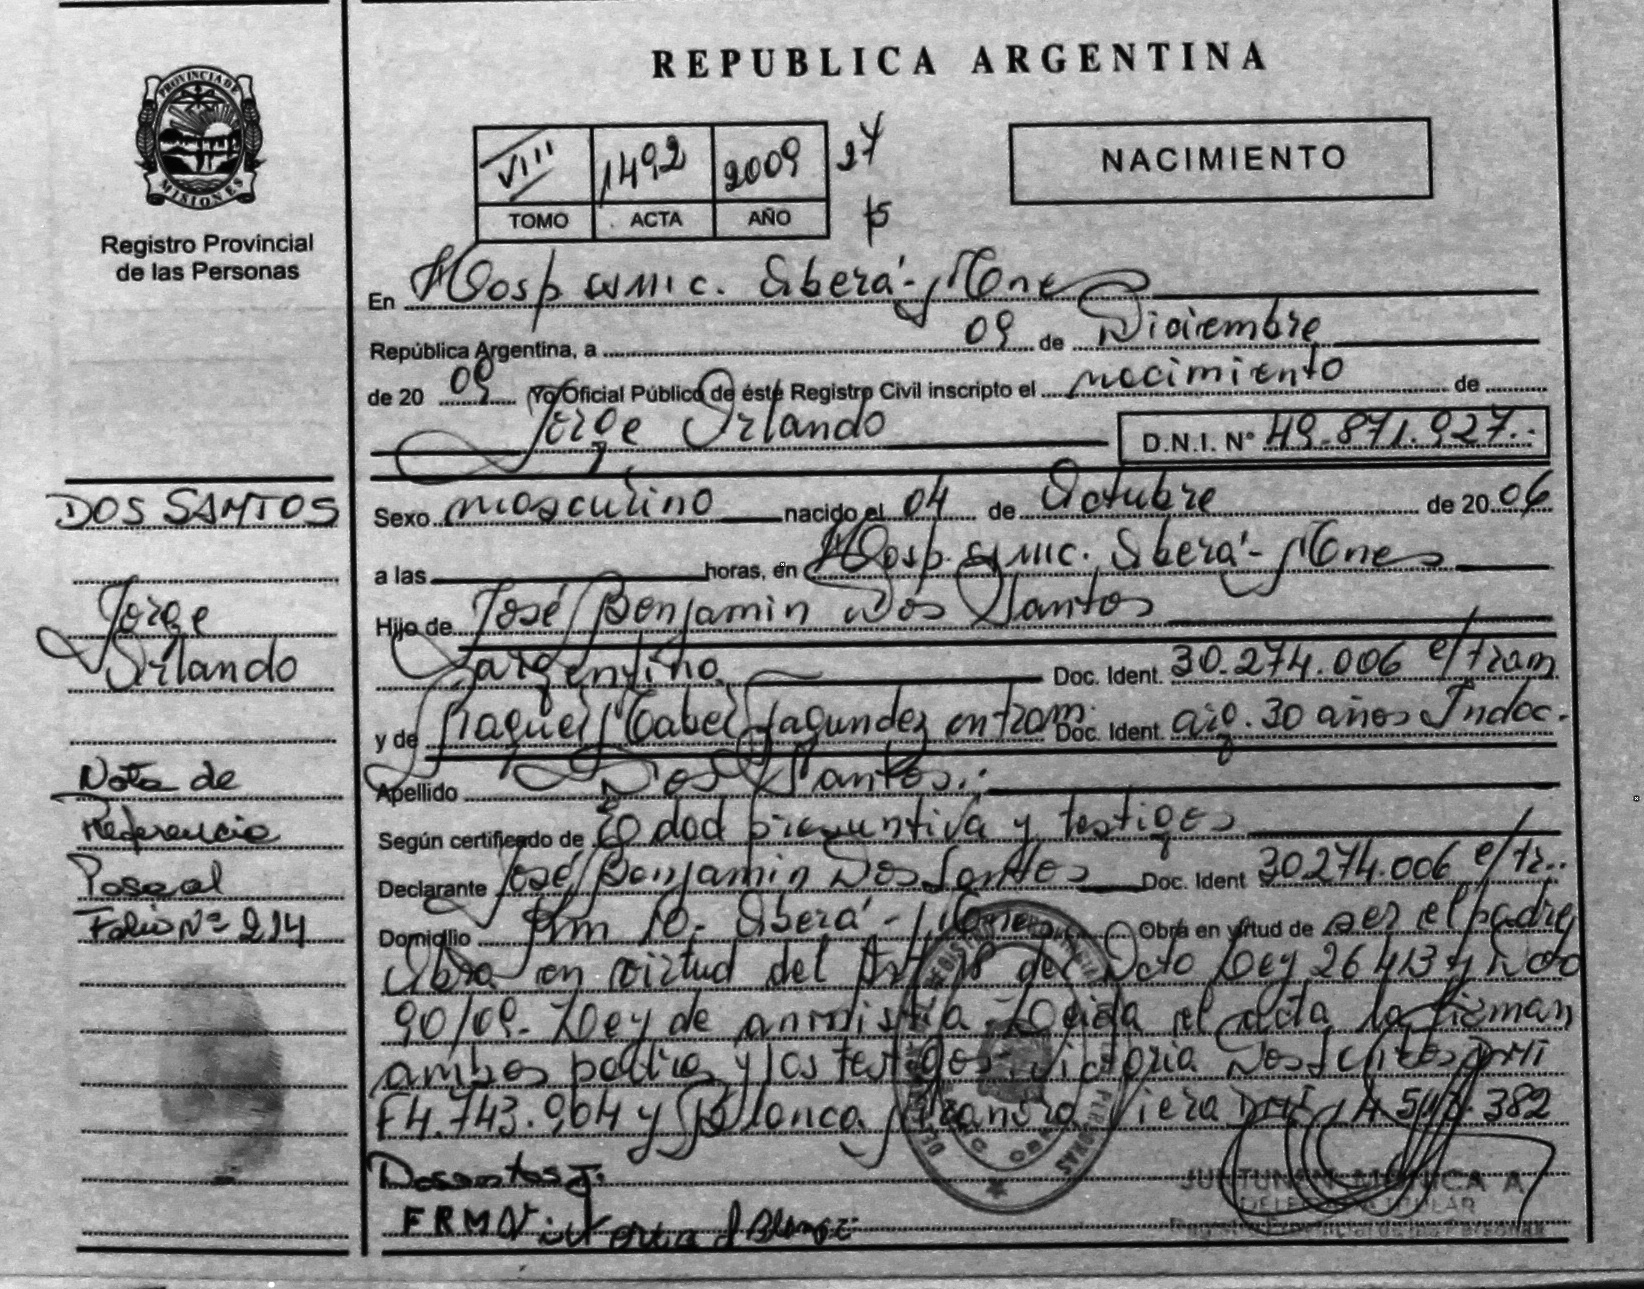 REPUBLICA ARGENTINA
PROVINCIA DE MISIONES
Registro Provincial
de las Personas
VIII 1492 2009 27
TOMO ACTA AÑO
NACIMIENTO
En Hosp SAMIC. Eberá - Mnes
República Argentina, a 09 de Diciembre
de 20 09 Yo Oficial Público de éste Registro Civil inscripto el nacimiento de
Jorge Orlando D.N.I. N° 49.871.927.
DOS SANTOS
Jorge
Orlando
Nota de
Referencia
Folio Nº 214
Sexo masculino nacido el 04 de Octubre de 20 06
a las horas, en Hosp. SAMIC. Eberá - Mnes
Hijo de José Benjamin Dos Santos
argentino Doc. Ident. 30.274.006 e/tram
y de Raquel Isabel Fagundez en tram. Doc. Ident. arg. 30 años Indoc.
Apellido Dos Santos.
Según certificado de Edad presuntiva y testigos
Declarante José Benjamin Dos Santos Doc. Ident 30274.006 e/tr..
Domicilio Km 10 - Eberá - Mnes Obra en virtud de ser el padre
Obra en virtud del Art del Dcto Ley 26413 y Dcto
90/09 - Ley de amnistía - Leida el acta la firman
ambos padres y los testigos Victoria Dos Santos DNI
F4.743.964 y Blanca Viera DNI 382
Dossantos J.
FRM
JUNTUNEN MONICA A
DELEGADA TITULAR
Registro Provincial de las Personas